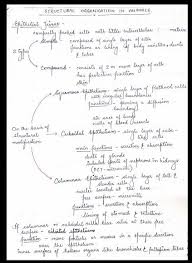 STRUCTURAL ORGANISATION IN ANIMALS
Epithelial Tissue -
compactly packed cells with little intercellular matrix
2 Types
Simple - composed of single layer of cells
functions as lining of body cavities, ducts
& tubes
Compound - consists of 2 or more layer of cells
has protective function
skin
On the basis of
structural
modification
Squamous Epithelium - single layer of flattened cells
with irregular boundaries
functions - forming a diffusion
boundary
air sacs of lungs
walls of blood vessels
Cuboidal Epithelium - single layer of cube-
like cells
main functions - secretion & absorption
ducts of glands
tubular parts of nephrons in kidney
PCT - microvilli
Columnar Epithelium - single layer of tall &
slender cells
nuclei located at the base
free surface - microvilli
functions - secretion & absorption
lining of stomach & intestine
If columnar or cuboidal cells bear cilia at their free
surface - ciliated epithelium
function - move particles or mucus in a specific direction
over the epithelium
inner surface of hollow organs like bronchioles & fallopian tubes